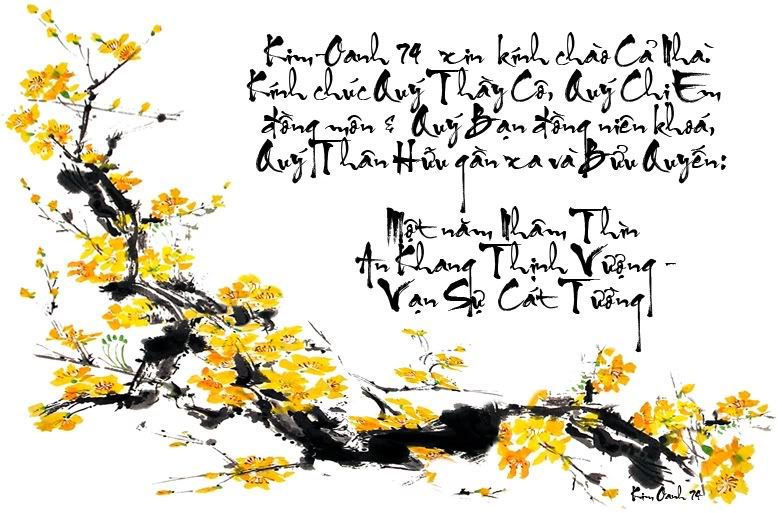 Kim-Oanh 74 xin kính chào Cả Nhà.
Kính chúc Quý Thầy Cô, Quý Chị Em
đồng môn & Quý Bạn đồng niên khoá,
Quý Thân Hữu gần xa và Bửu Quyến:
Một năm Nhâm Thìn
An Khang Thịnh Vượng -
Vạn Sự Cát Tường
Kim Oanh 74